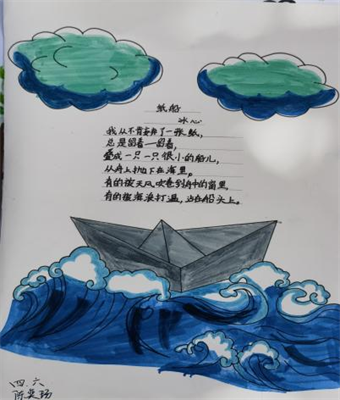 纸船
冰心
我从不肯妄弃了一张纸，
总是留着—留着，
叠成一只一只很小的船儿，
从舟上抛下在海里。
有的被天风吹卷到舟中的窗里，
有的被海浪打湿，沾在船头上。
四 六
陈